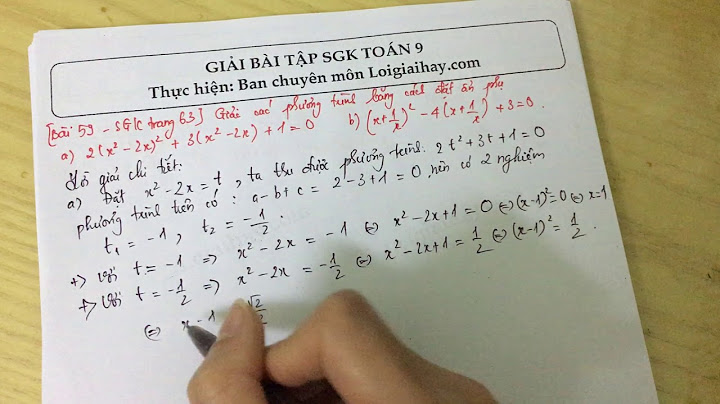 GIẢI BÀI TẬP SGK TOÁN 9
Thực hiện: Ban chuyên môn Loigiaihay.com
[Bài 59 - SGK trang 63] Giải các phương trình bằng cách đặt ẩn phụ
a) 2(x² - 2x)² + 3(x² - 2x) + 1 = 0 b) (x + 1/x)² - 4(x + 1/x) + 3 = 0.
Lời giải chi tiết:
a) Đặt x² - 2x = t, ta thu được phương trình: 2t² + 3t + 1 = 0
phương trình trên có: a - b + c = 2 - 3 + 1 = 0 nên có 2 nghiệm
t₁ = -1, t₂ = -1/2.
+) Với t = -1 ⇒ x² - 2x = -1 ⇔ x² - 2x + 1 = 0 ⇔ (x-1)² = 0 ⇔ x = 1
+) Với t = -1/2 ⇒ x² - 2x = -1/2 ⇔ x² - 2x + 1 = 1/2 ⇔ (x-1)² = 1/2.
⇔ x - 1 √2/2